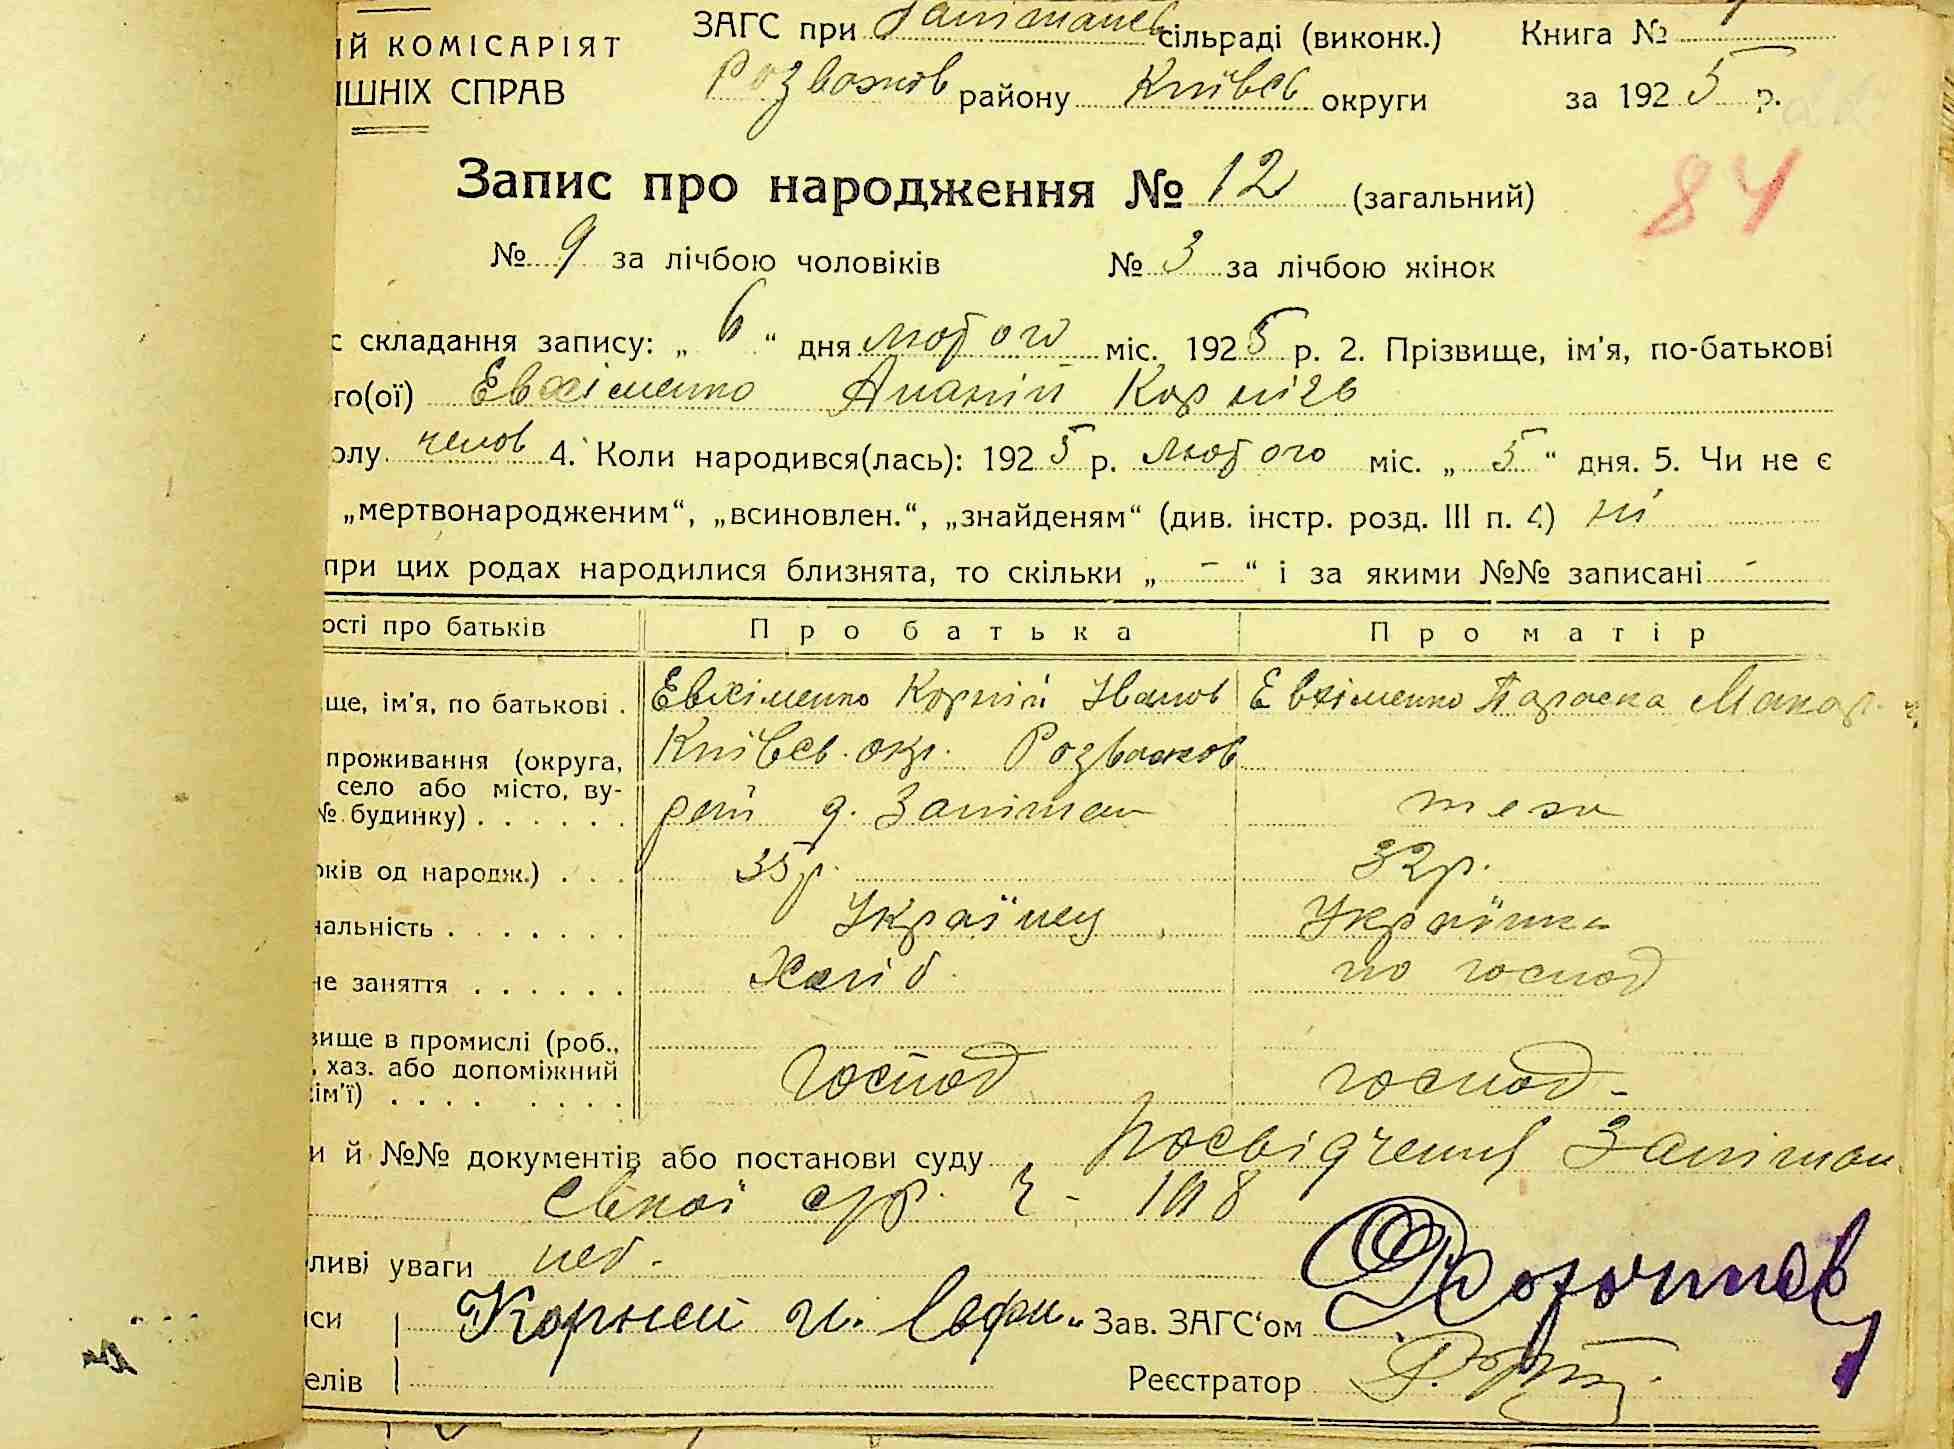 ІЙ КОМІСАРІЯТ
ІШНІХ СПРАВ
ЗАГС при сільраді (виконк.) Книга №
Розважов району Київсь округи за 1925 р.
84
Запис про народження № 12 (загальний)
№ 9 за лічбою чоловіків № 3 за лічбою жінок
с складання запису: „ 6 “ дня лютого міс. 1925 р. 2. Прізвище, ім'я, по-батькові
го(ої) Евхіменко Ананій Корніів
олу челов 4. Коли народився(лась): 1925 р. лютого міс. „ 5 “ дня. 5. Чи не є
„мертвонародженим“, „всиновлен.“, „знайденям“ (див. інстр. розд. III п. 4) ні
при цих родах народилися близнята, то скільки „ - “ і за якими №№ записані -
ості про батьків Про батька Про матір
ще, ім'я, по батькові . Евхіменко Корній Іванов Евхіменко Параска Макар.
проживання (округа, Київсь. окр. Розважов
село або місто, ву-
№ будинку) . . . . . . рай д. Запітан теж
оків од народж.) . . . 35 р. 32 р.
нальність . . . . . . . Українец Українка
не заняття . . . . . . Хліб. по господ
вище в промислі (роб.,
, хаз. або допоміжний
сім'ї) . . . . . . . . господ господ -
и й №№ документів або постанови суду посвідчення
1918
ливі уваги
иси Корней И. Евфи. Зав. ЗАГС'ом
елів Реєстратор